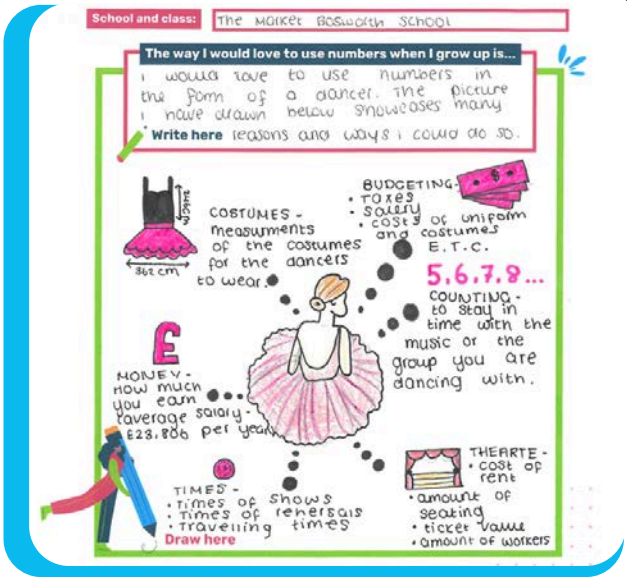 School and class: The Market Bosworth School
The way I would love to use numbers when I grow up is...
i would love to use numbers in
the form of a dancer. The picture
i have drawn below showcases many
Write here reasons and ways i could do so.
BUDGETING-
• Taxes
• salary
• costs of uniform
and costumes
E.T.C.
COSTUMES -
measurments
of the costumes
for the dancers
to wear.
362 cm
5,6,7,8...
COUNTING -
to stay in
time with the
music or the
group you are
dancing with.
£
MONEY -
HOW much
you earn
(average salary -
£28,806 per year)
TIMES -
• Times of shows
• Times of rehersals
• Travelling times
THEARTE -
• cost of
rent
• amount of
seating
• ticket value
• amount of workers
Draw here